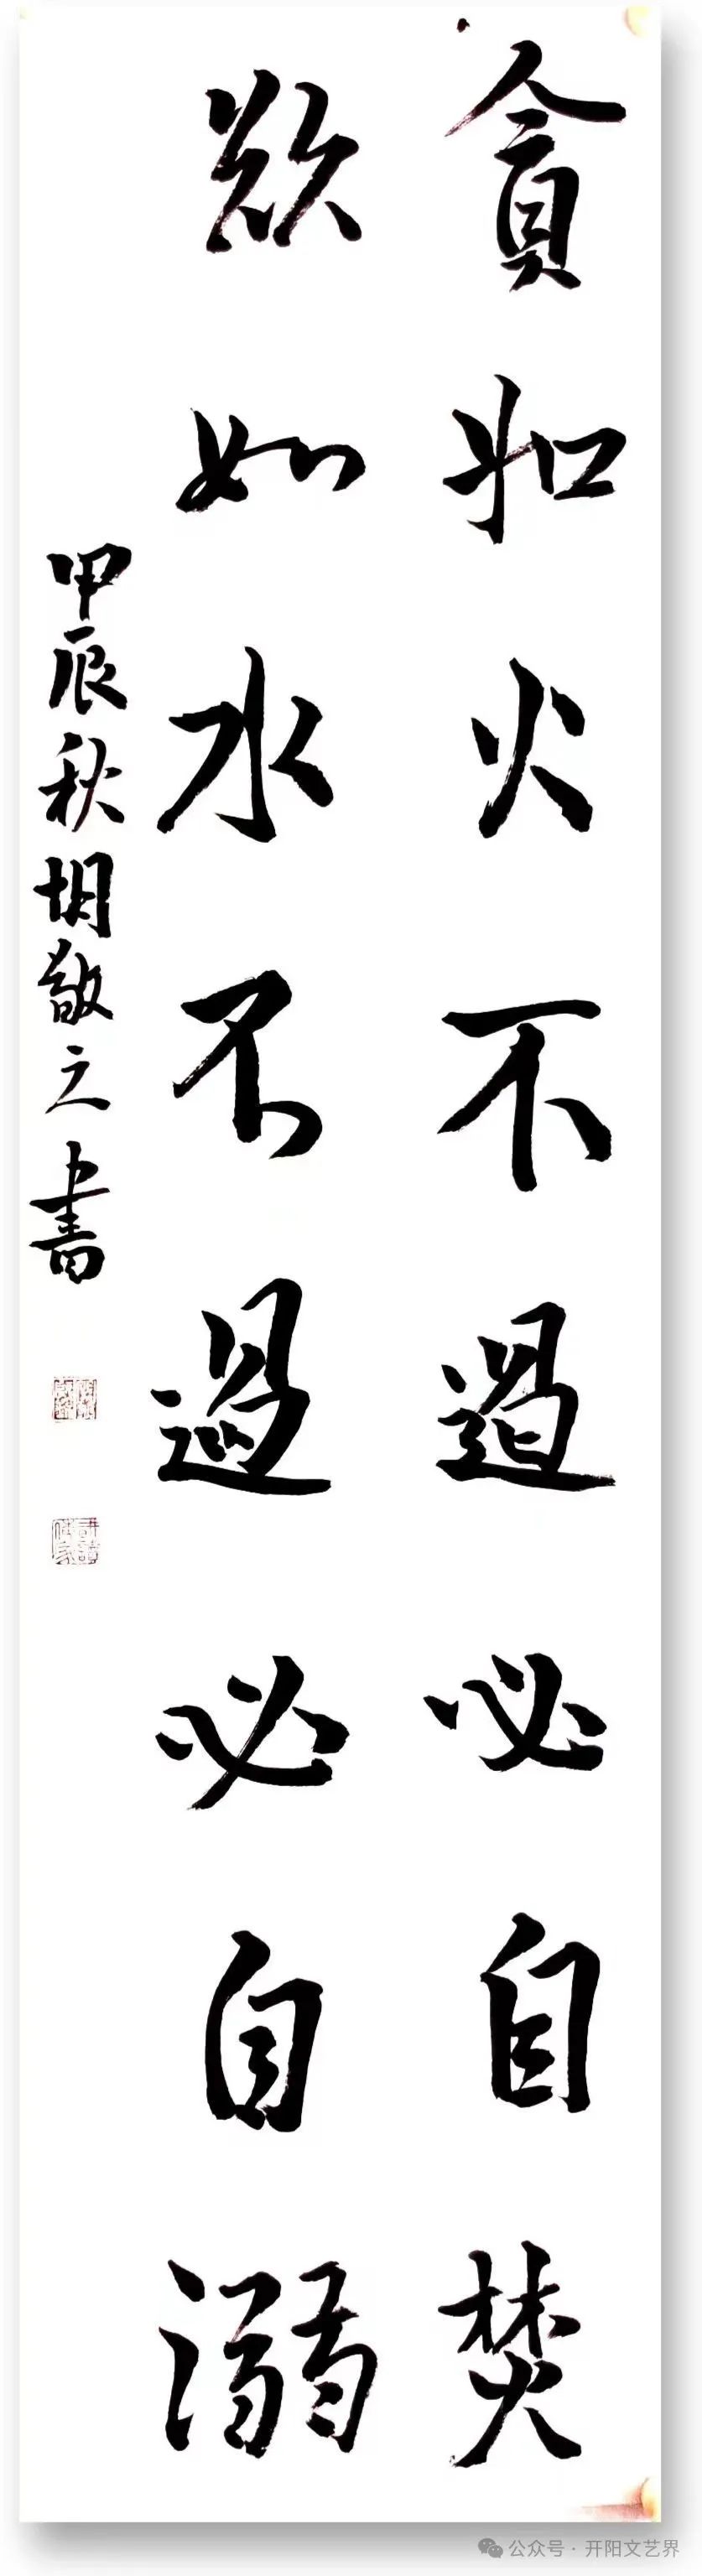 貪如火不遏必自焚
欲如水不遏必自溺
甲辰秋胡敬之書
公众号·开阳文艺界